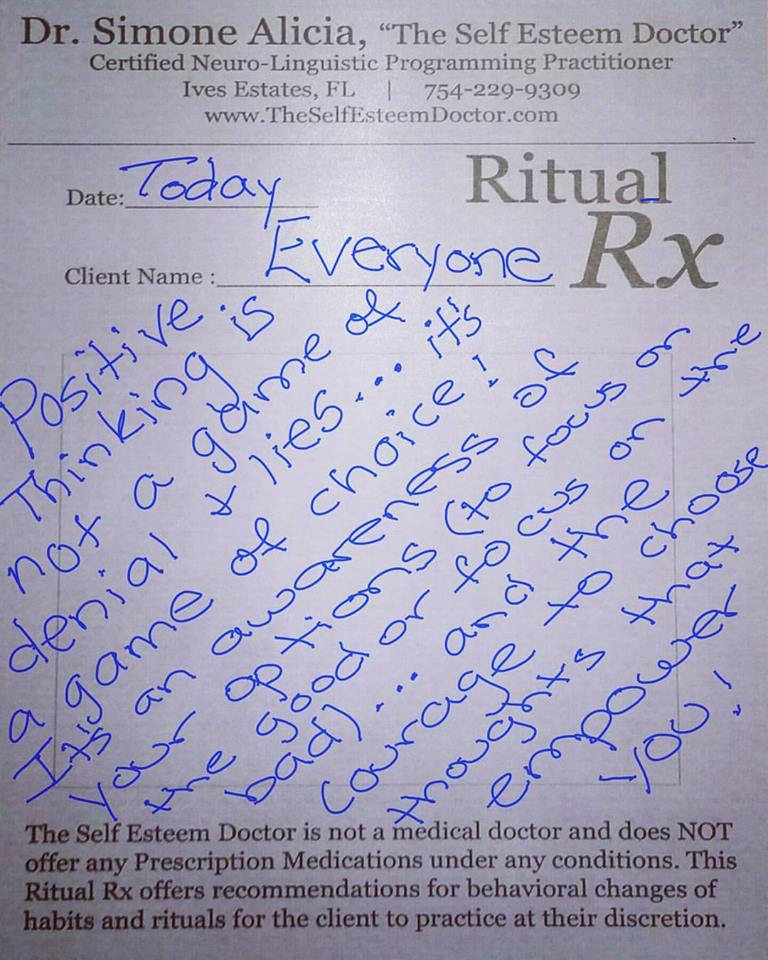 Dr. Simone Alicia, “The Self Esteem Doctor”
Certified Neuro-Linguistic Programming Practitioner
Ives Estates, FL | 754-229-9309
www.TheSelfEsteemDoctor.com
Date: Today
Ritual
Rx
Client Name : Everyone
Positive
Thinking is
not a game of
denial & lies... its
a game of choice!
It's an awareness of
your options (to focus on
the good or focus on the
bad)... and the
courage to choose
thoughts that
empower
you!
The Self Esteem Doctor is not a medical doctor and does NOT
offer any Prescription Medications under any conditions. This
Ritual Rx offers recommendations for behavioral changes of
habits and rituals for the client to practice at their discretion.